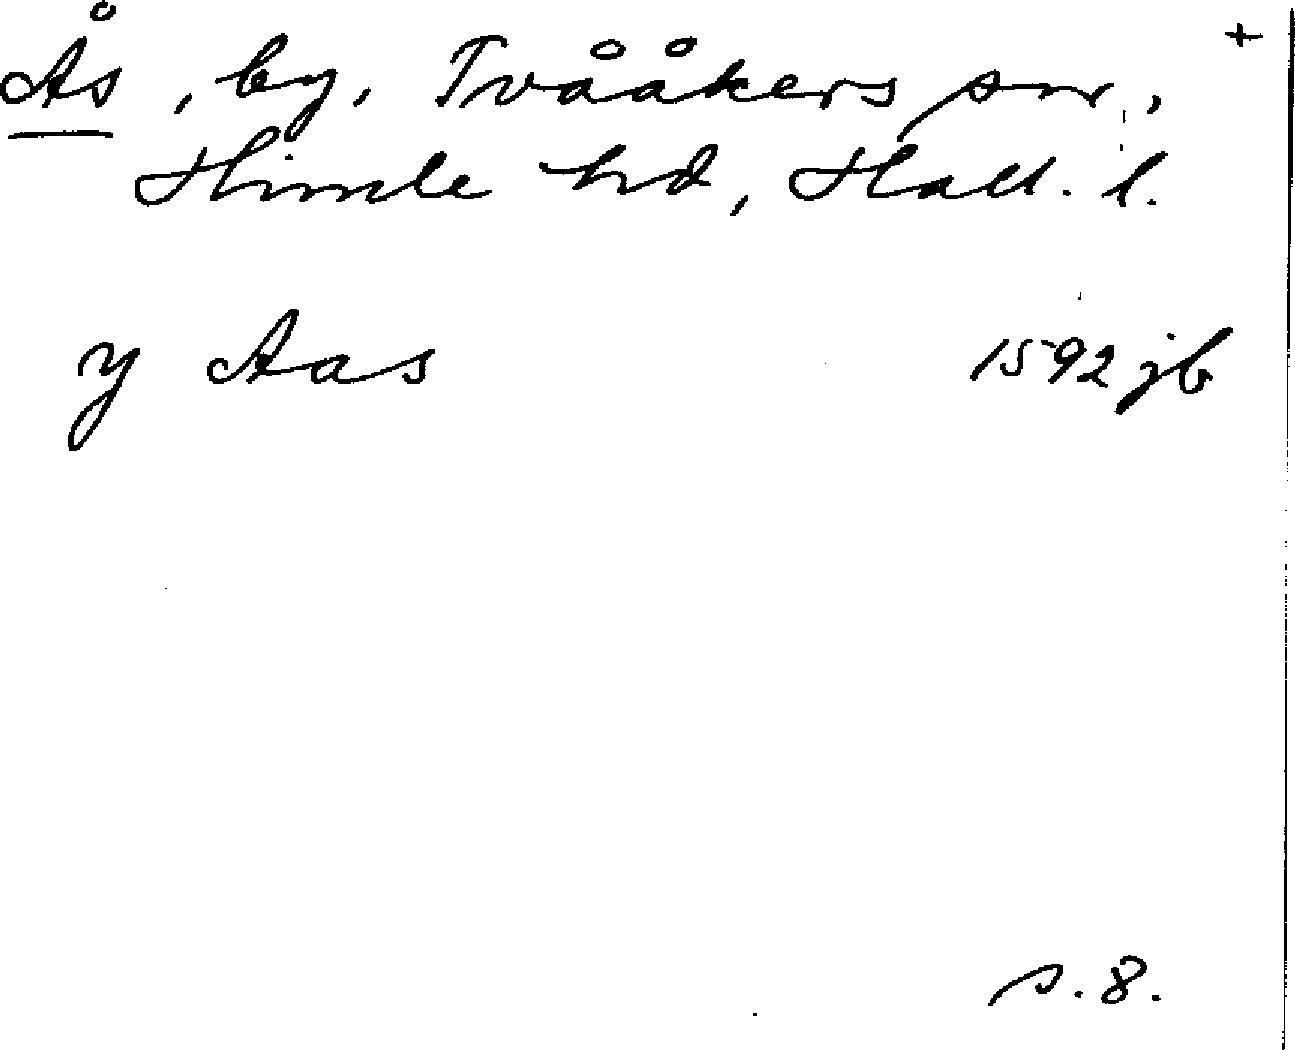 Ås, by, Tvååkers sn, +
Himle hd, Hall. l.
y Aas 1592 jb
s. 8.